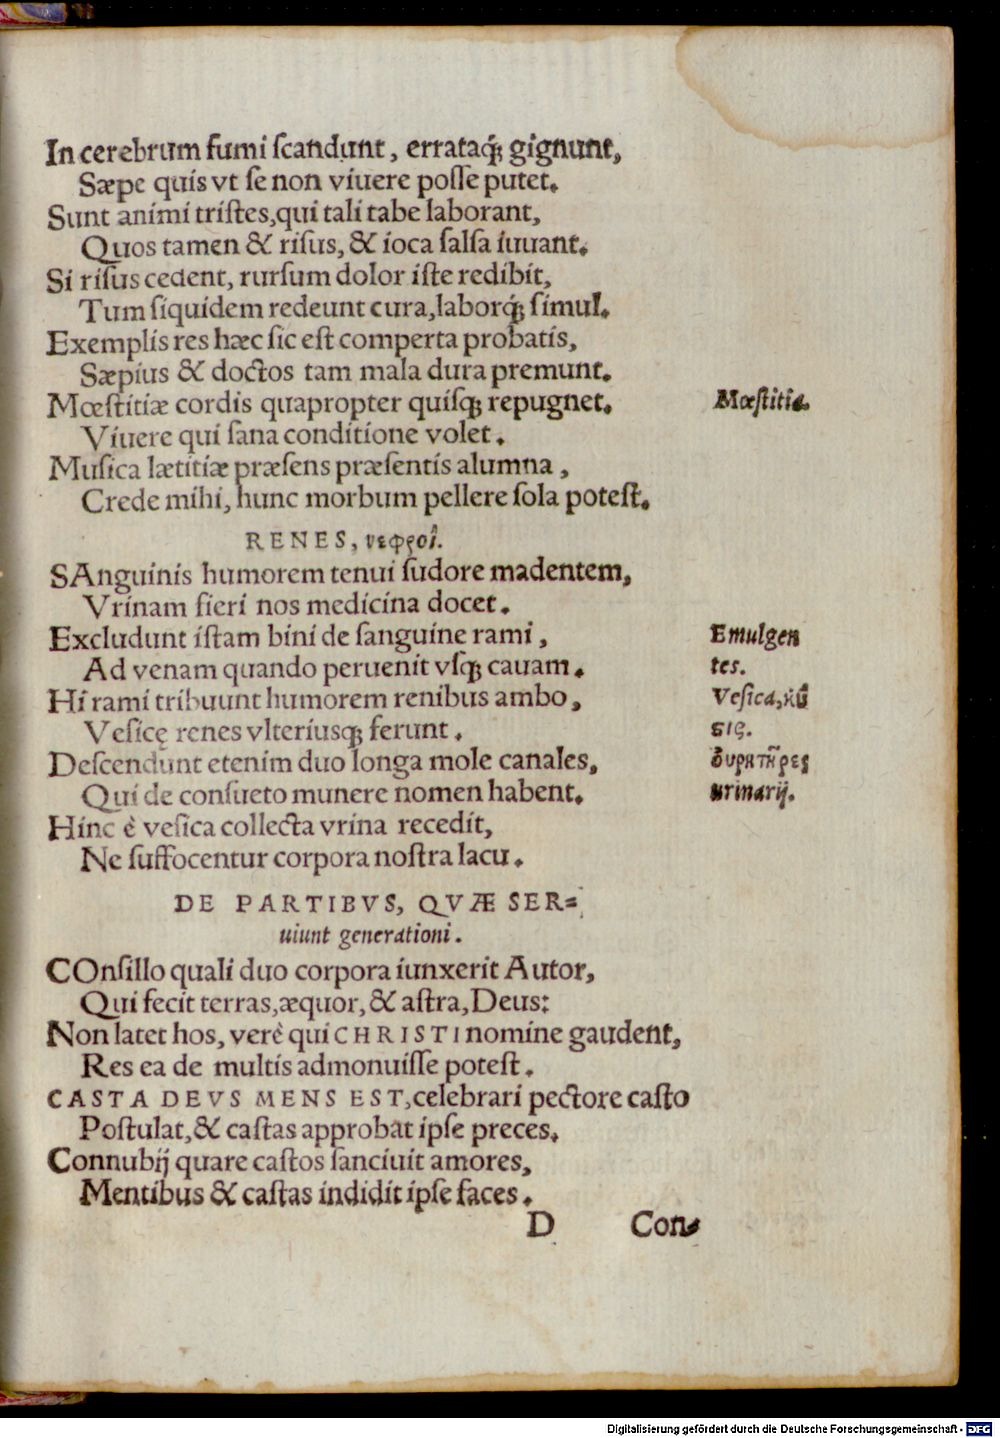 In cerebrum fumi ſcandunt, errataq́ꝫ gignunt,
Sæpe quis vt ſe non viuere poſſe putet.
Sunt animi triſtes, qui tali tabe laborant,
Quos tamen & riſus, & ioca ſalſa iuuant.
Si riſus cedent, rurſum dolor iſte redibit,
Tum ſiquidem redeunt cura, laborq́ꝫ ſimul.
Exemplis res hæc ſic eſt comperta probatis,
Sæpius & doctos tam mala dura premunt.
Mœſtitiæ cordis quapropter quiſqꝫ repugnet. Mœſtitia.
Viuere qui ſana conditione volet.
Muſica lætitiæ præſens præſentis alumna,
Crede mihi, hunc morbum pellere ſola poteſt.
RENES, νεφροί.
SAnguinis humorem tenui ſudore madentem,
Vrinam fieri nos medicina docet.
Excludunt iſtam bini de ſanguine rami, Emulgen
Ad venam quando peruenit vſqꝫ cauam. tes.
Hi rami tribuunt humorem renibus ambo, Veſica, κύ
Veſicę renes vlteriusqꝫ ferunt. στις.
Deſcendunt etenim duo longa mole canales, ὀυρητῆρες
Qui de conſueto munere nomen habent. urinarij.
Hinc è veſica collecta vrina recedit,
Ne ſuffocentur corpora noſtra lacu.
DE PARTIBVS, QVÆ SER=
uiunt generationi.
COnſilio quali duo corpora iunxerit Autor,
Qui fecit terras, æquor, & aſtra, Deus:
Non latet hos, verè qui CHRISTI nomine gaudent,
Res ea de multis admonuiſſe poteſt.
CASTA DEVS MENS EST, celebrari pectore caſto
Poſtulat, & caſtas approbat ipſe preces.
Connubij quare caſtos ſanciuit amores,
Mentibus & caſtas indidit ipſe faces.
D Con-
Digitalisierung gefördert durch die Deutsche Forschungsgemeinschaft - DFG